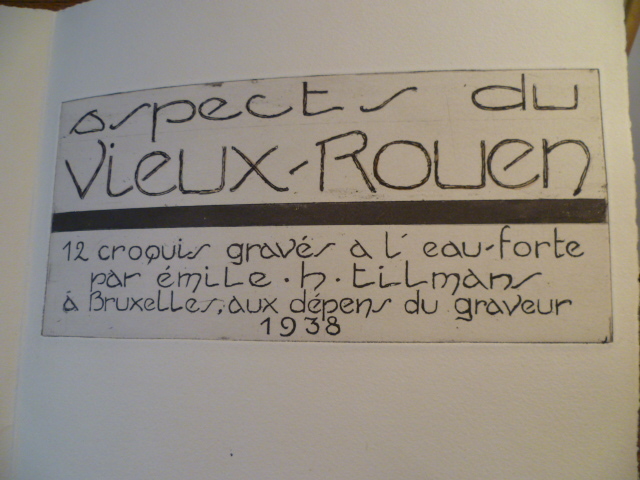 aspects du
Vieux-Rouen
12 croquis gravés a l'eau-forte
par émile · h · tillmans
à Bruxelles, aux dépens du graveur
1938